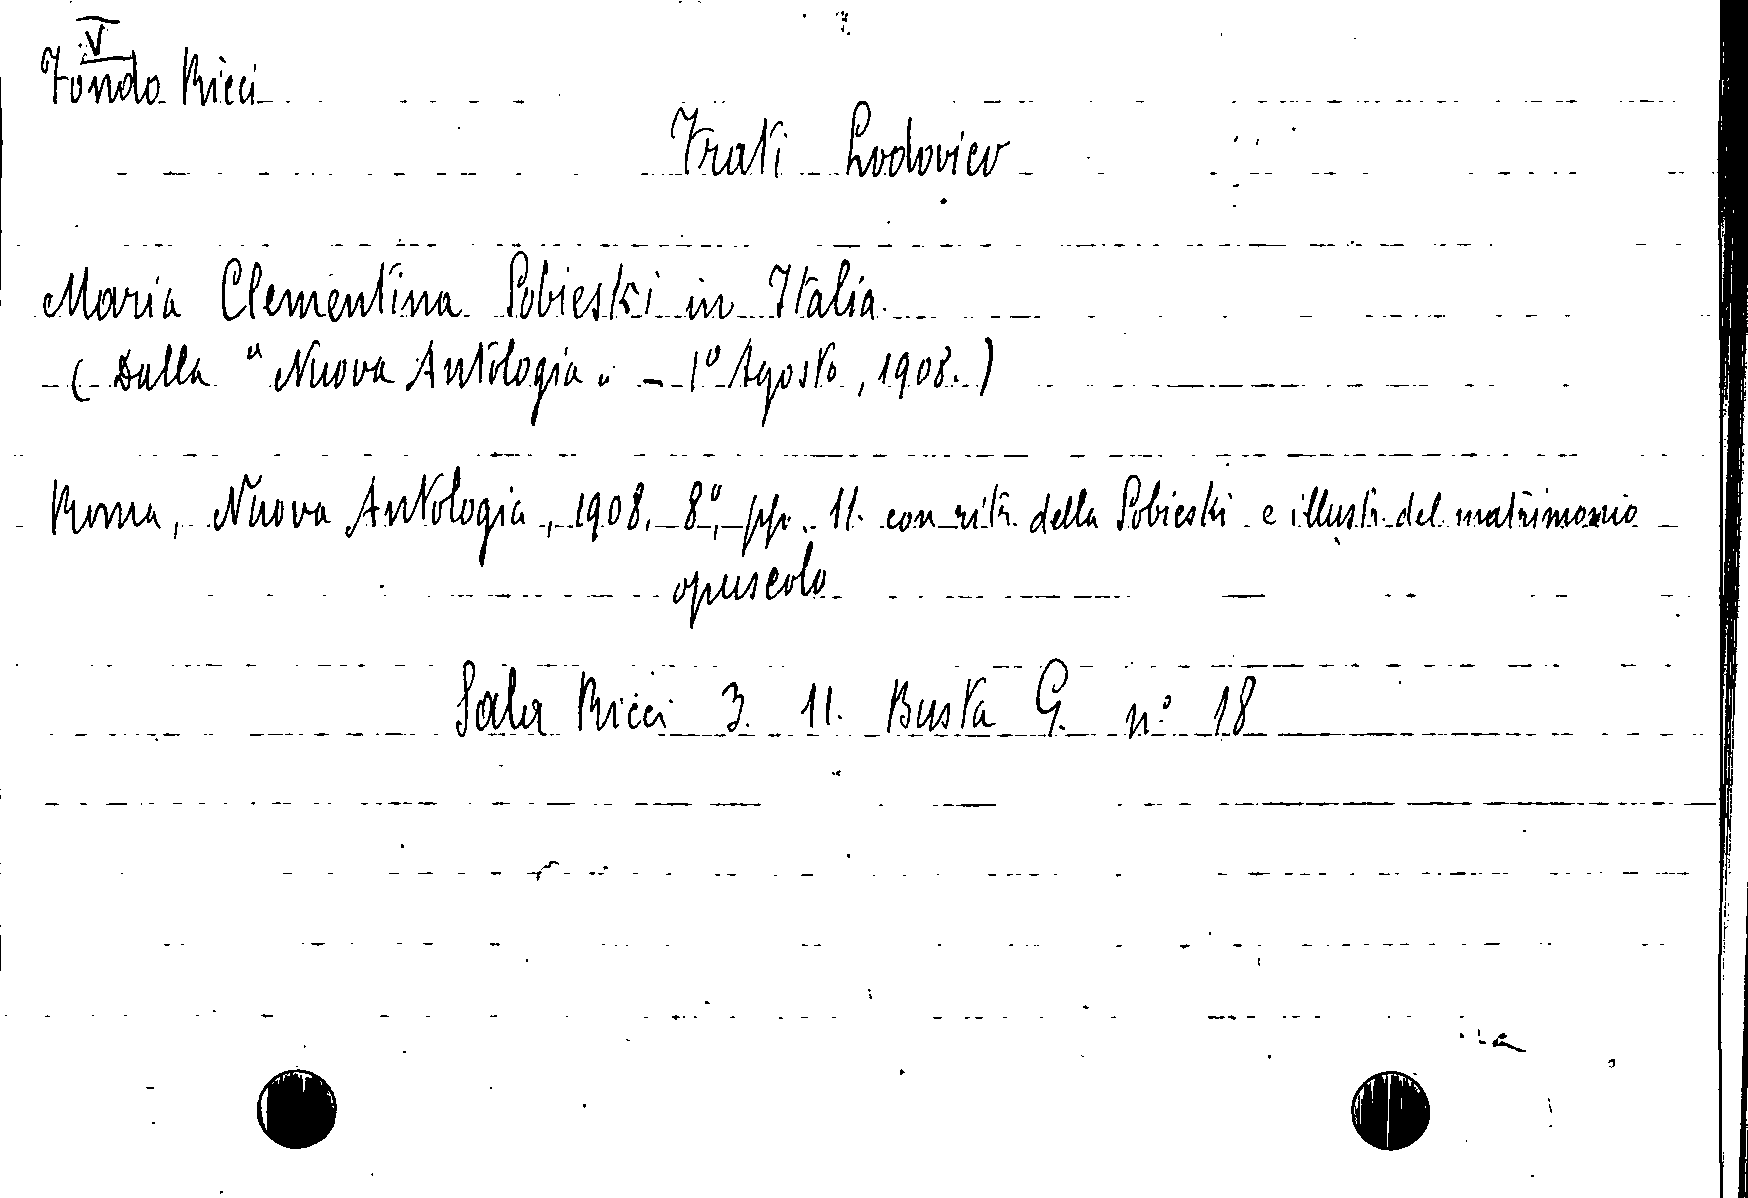 V
Fondo Ricci
Frati Lodovico
Maria Clementina Sobieski in Italia.
(Dalla "Nuova Antologia" - 1º Agosto, 1908.)
Roma, Nuova Antologia, 1908. 8º, pp. 11. con ritr. della Sobieski e illustr. del matrimonio
opuscolo
Sala Ricci 3. 11. Busta G. nº 18